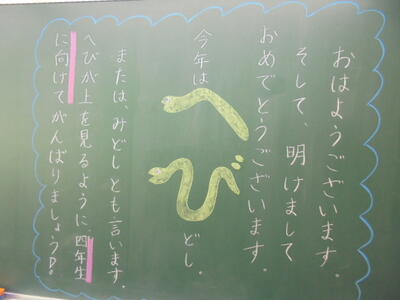 おはようございます。
そして、明けまして
おめでとうございます。
今年は
へびどし。
または、みどしとも言います。
へびが上を見るように、四年生
に向けてがんばりましょう!